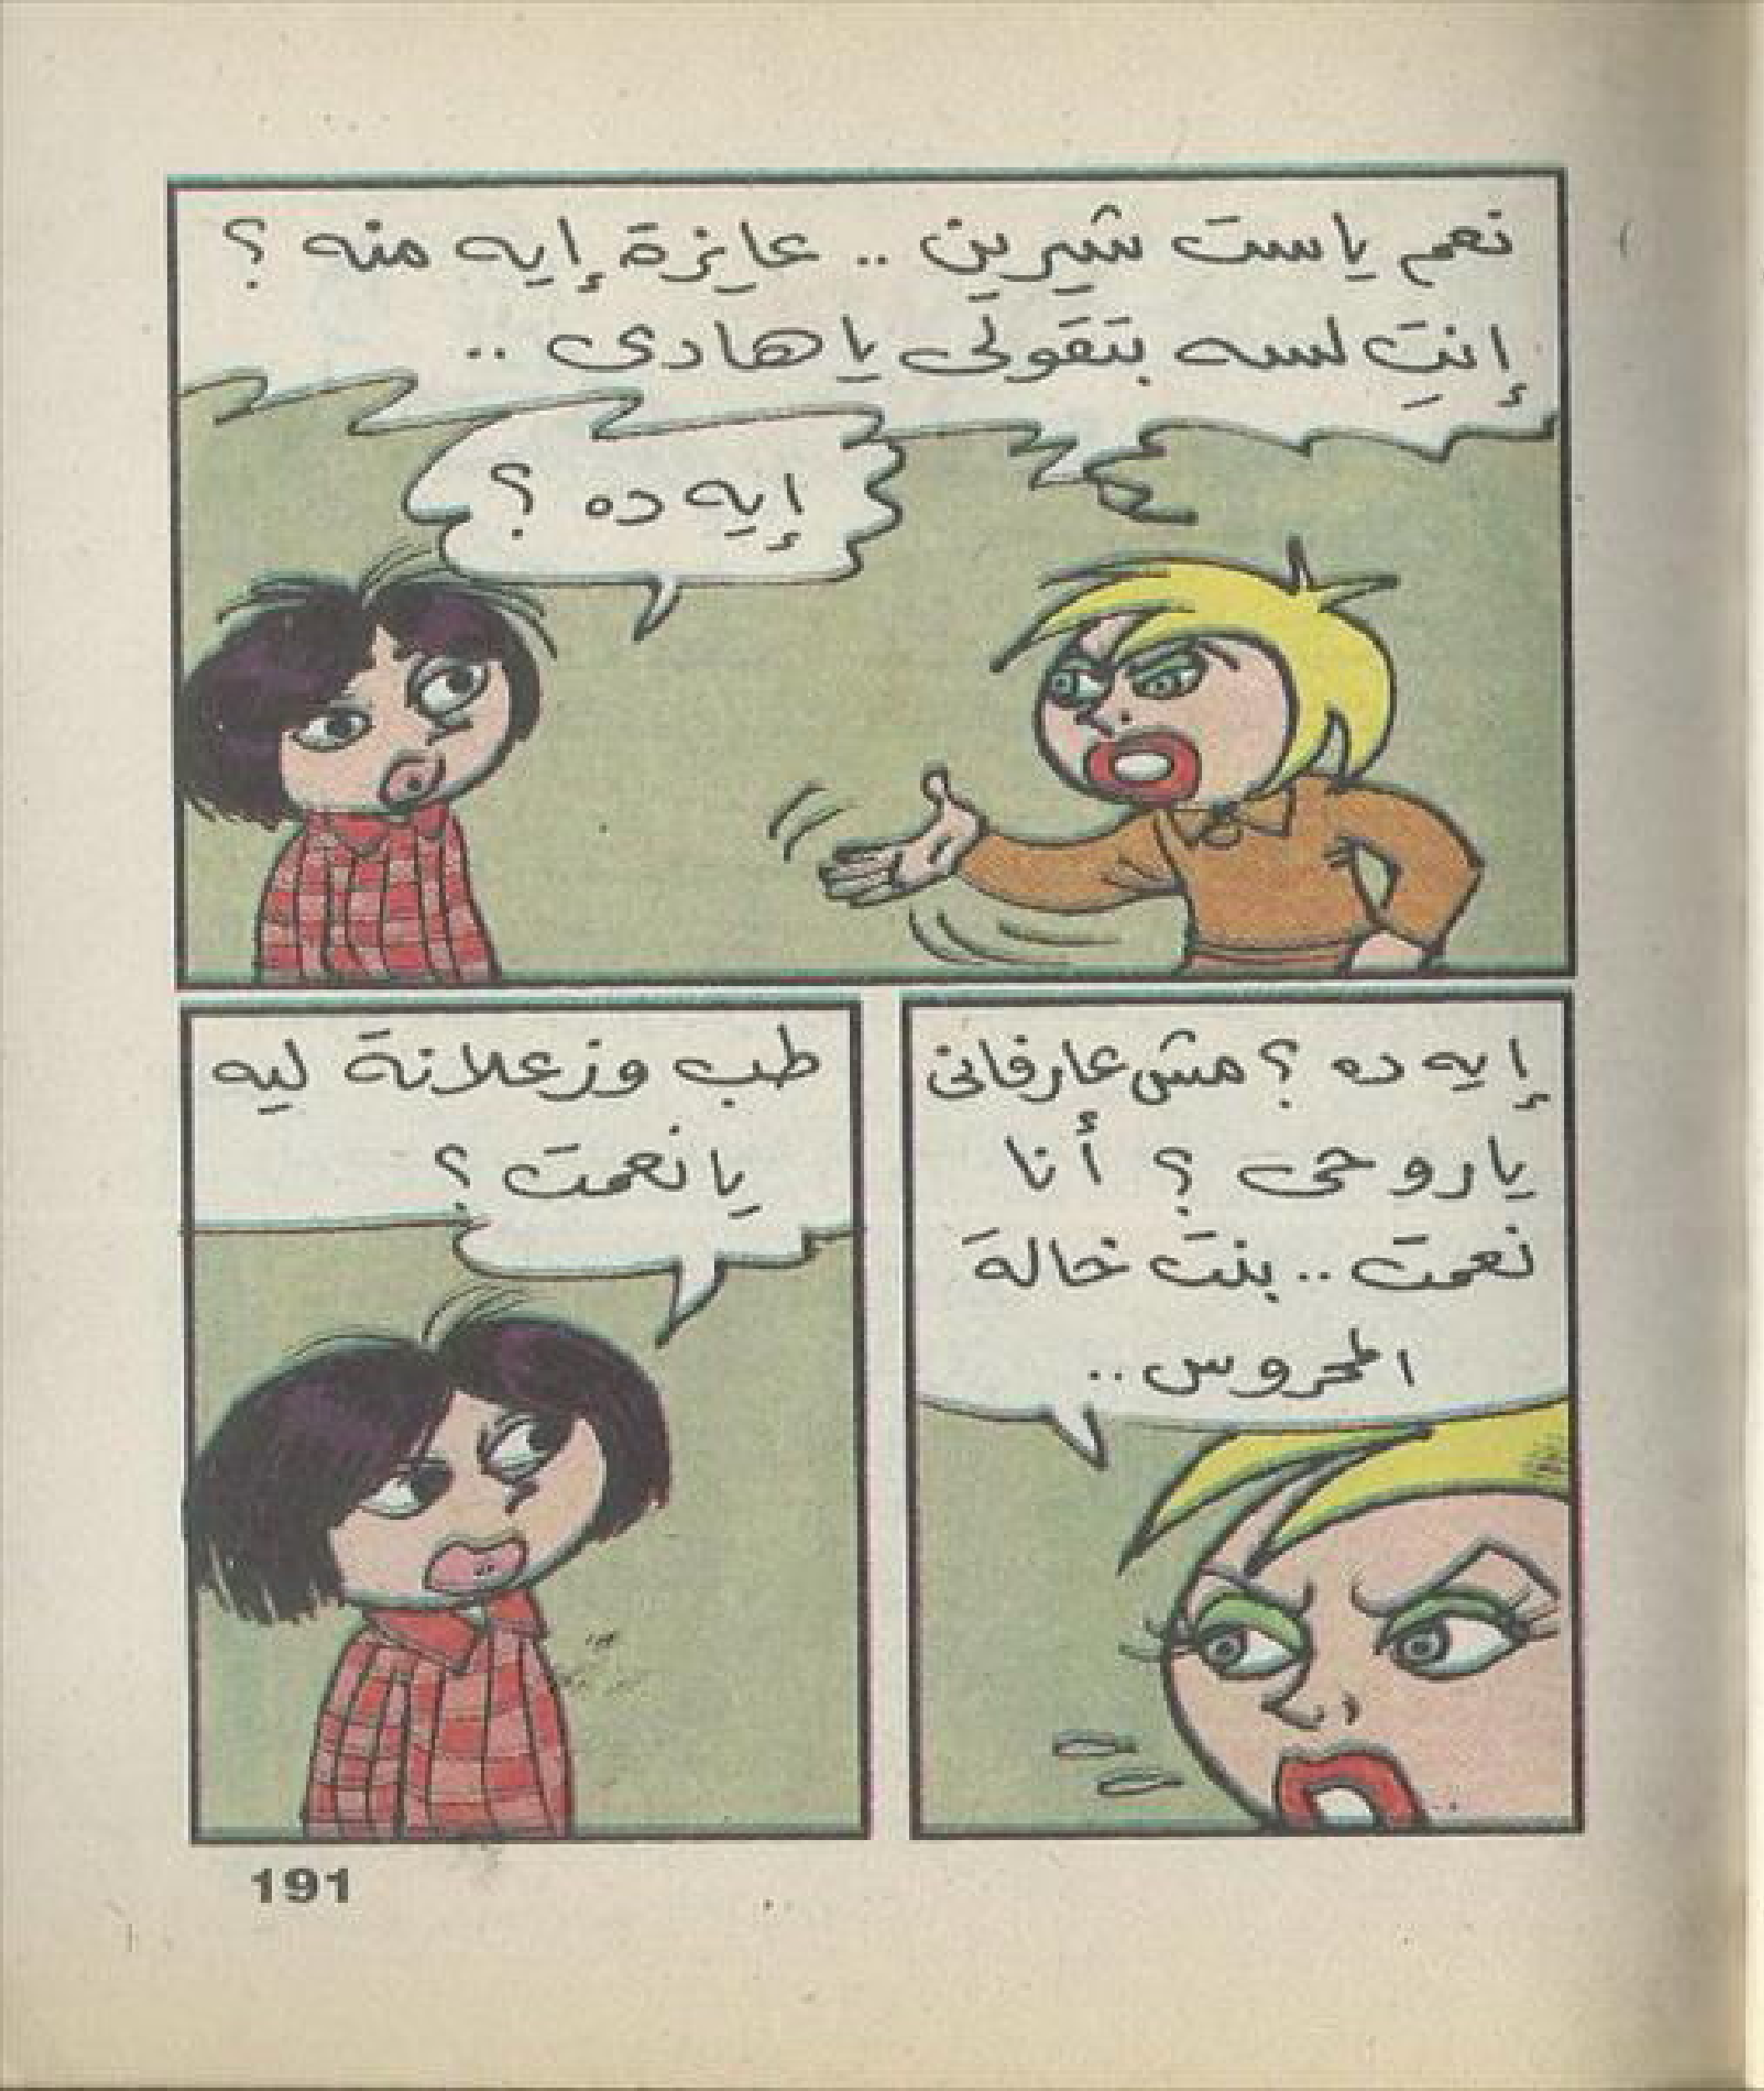 نعم ياست شيرين .. عايزة إيه منه ؟
إنتِ لسه بتقولى يا هادى ..
إيه ده ؟
إيه ده ؟ مش عارفانى
ياروحى ؟ أنا
نعمت .. بنت خالة
المحروس ..
طب وزعلانة ليه
يا نعمت ؟
191